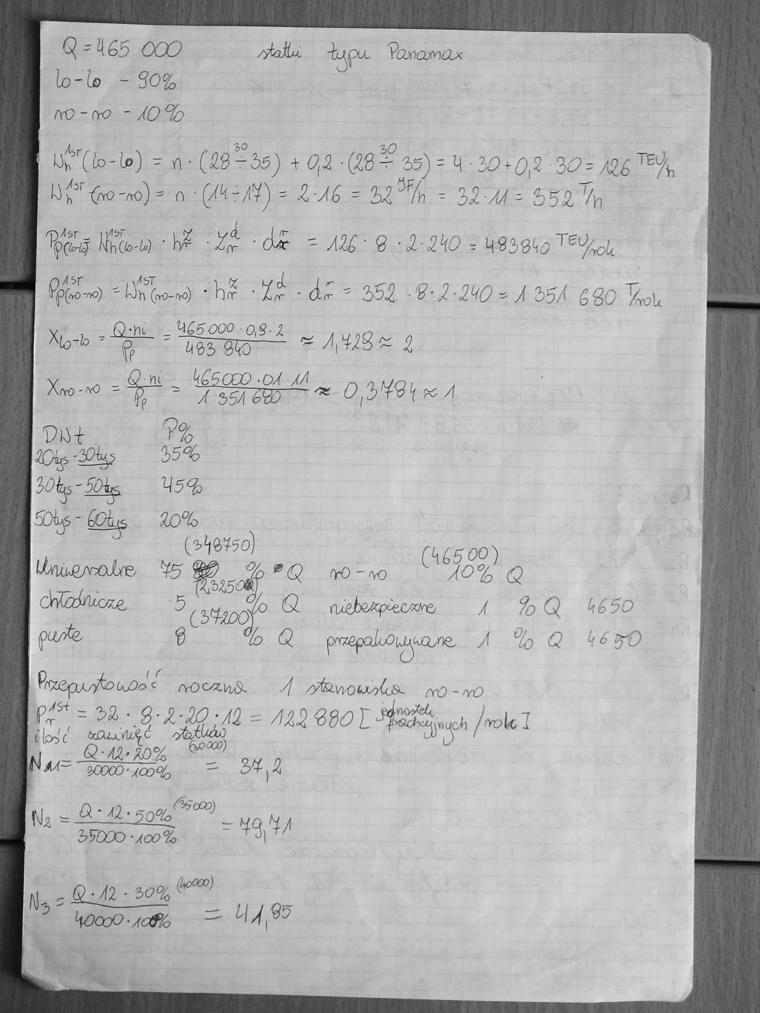 Q = 465 000 statki typu Panamax
lo-lo - 90%
ro-ro - 10%
30 30
W_h^1ST (lo-lo) = n · (28 ÷ 35) + 0,2 · (28 ÷ 35) = 4 · 30 + 0,2 · 30 = 126 TEU/h
W_h^1ST (ro-ro) = n · (14 ÷ 17) = 2 · 16 = 32 JF/h = 32 · 11 = 352 T/h
P_p(lo-lo)^1ST = W_h(lo-lo)^1ST · h_r^z · Z_r^d · d_r^r = 126 · 8 · 2 · 240 = 483840 TEU/rok
P_p(ro-ro)^1ST = W_h(ro-ro)^1ST · h_r^z · Z_r^d · d_r^r = 352 · 8 · 2 · 240 = 1 351 680 T/rok
X_lo-lo = Q·ni / P_p = 465 000 · 0,9 · 2 / 483 840 ≈ 1,728 ≈ 2
X_ro-ro = Q·ni / P_p = 465000 · 01 · 11 / 1 351 680 ≈ 0,3784 ≈ 1
DWt P%
20tys - 30tys 35%
30tys - 50tys 45%
50tys - 60tys 20%
(348750) (46500)
Uniwersalne 75 % · Q ro-ro 10% Q
(23250)
chłodnicze 5 % Q niebezpieczne 1 % Q 4650
(37200)
puste 8 % Q przepakowywane 1 % Q 4650
Przepustowość roczna 1 stanowiska ro-ro
P_r^1st = 32 · 8 · 2 · 20 · 12 = 122 880 [jednostek frachtyjnych / rok]
ilość zawinięć statków
N_1 = Q · 12 · 20% (30000) / 30000 · 100% = 37,2
N_2 = Q · 12 · 50% (35000) / 35000 · 100% = 79,71
N_3 = Q · 12 · 30% (40000) / 40000 · 100% = 41,85